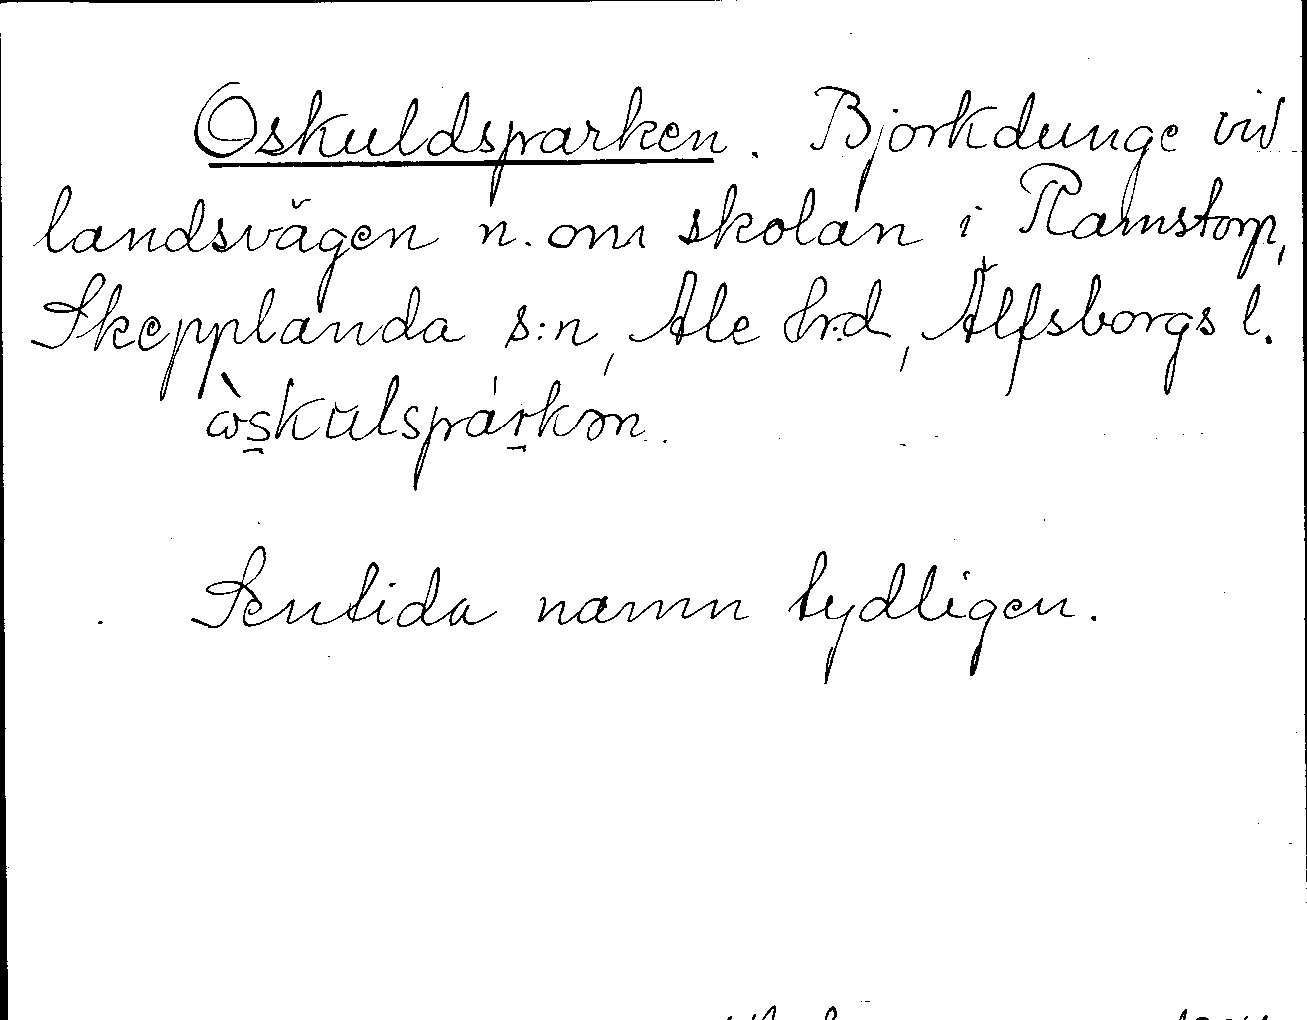 Oskuldsparken. Björkdunge vid
landsvägen n. om skolan i Ramstorp,
Skepplanda s:n, Ale hrd, Älfsborgs l.
ὼskulspárkən.
Sentida namn tydligen.